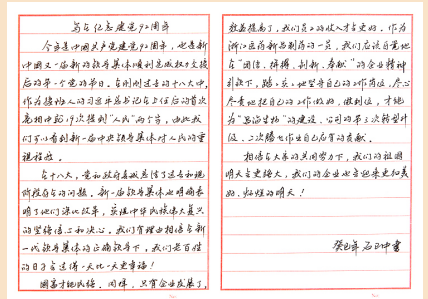 写在纪念建党92周年
今年是中国共产党建党92周年，也是新
中国又一届新的领导集体顺利完成权力交接
后的第一个党的节日。在刚刚过去的十八大中，
作为接班人的习近平总书记在上任后的首次
亮相中的19次提到“人民”两个字，由此我
们可以看到新一届中央领导集体对人民的重
视程度。
在十八大，党和政府总结了过去和现
阶段存在的问题。新一届领导集体也明确表
明了们深化改革，实现中华民族伟大复兴
的坚强信心和决心。我们有理由相信在新
一代领导集体的正确领导下，我们老百姓
的日子会过得一天比一天更幸福！
国富才能民强。同样，只有企业发展了，
效益提高了，我们员工的收入才会更高。作为
浙江医药新昌制药的一员，我们应该自觉地
在“团结、拼搏、创新、奉献”的企业精神
引领下，踏踏实实地坚守自己的工作岗位，尽心
尽责地把自己的工作做好，做到位，才能
为“
生物”的建设、公司的第三次转型升
级、二次腾飞作出自己应有的贡献。
相信在大家的共同努力下，我们的祖国
明天会更强大，我们的企业也会迎来更加美
好、灿烂的明天！
癸巳年 石
书